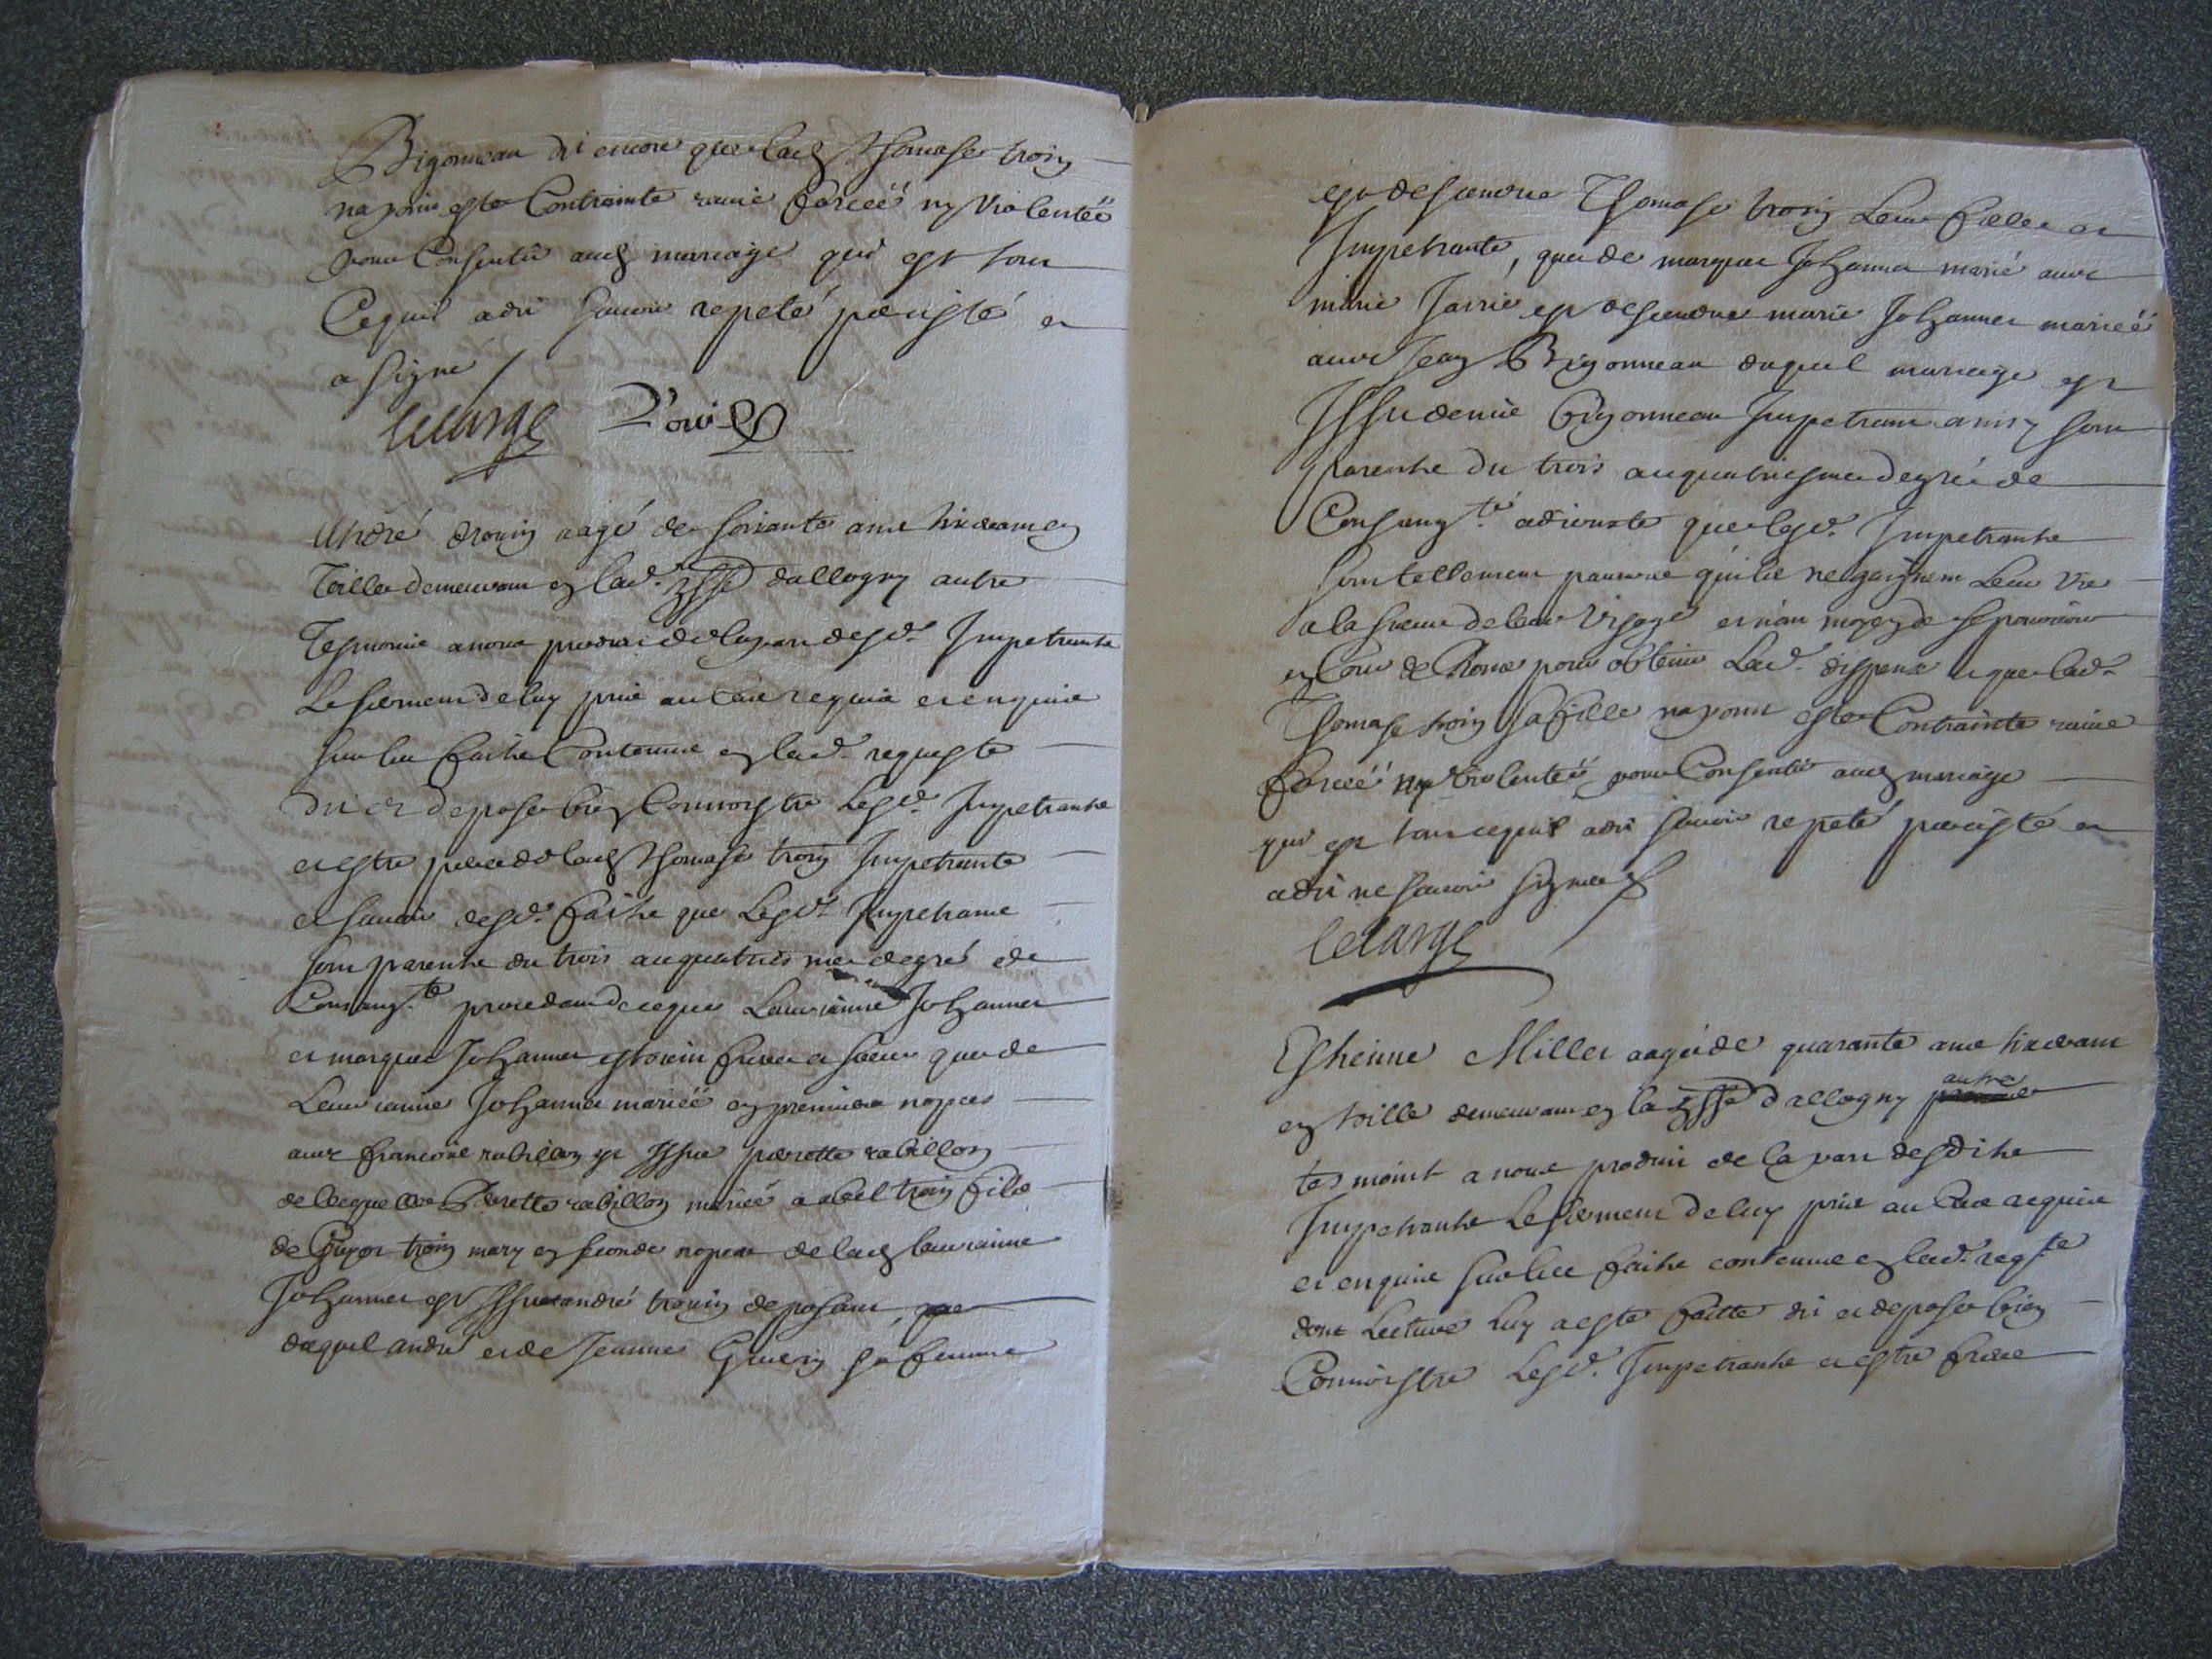 Bigonneau dit encore que lad. Thomase troin
na point esté Contrainte ravie forcéé ny violentéé
pour Consentir aud. mariage qui est tout
Cequil a dit scavoir repeté persisté et
a signé
lelarge
André troüin aagé de soixante ans tixeran en
Toille demeurant en lad. psse dallogny autre
Tesmoins a nous produit de la part desd. Impetrants
Le serment de luy pris au Cas requis et enquis
sur les faits Contenus en lad. requeste
dit et depose bien Connoistre Lesd. Impetrants
et estre pere de lad. Thomase troin Impetrante
et scavoir desd. faits que Lesd. Impetrans
sont parents du trois au quatriesme degré de
Consang.té procedant de ceque Leurianne Johannet
et marquet Johannet estoient frere et soeur que de
Leurianne Johannet mariéé en premieres nopces
avec francois rabillon est Issue perrotte rabillon
de laquelle Perrotte rabillon mariéé a abel troin fils
de Guyot troin mary en seconde nopces de lad. leurianne
Johannet est Issu andré trouin deposant,
duquel andré et de Jeanne Guerin sa femme
est descendue Thomase troin Leur fille et
Impetrante, que de marquet Johannet marié avec
marie Jarrie est descendue marie Johannet mariéé
avec Jean Bigonneau duquel mariage est
Issu denis bigonneau Impetrant ainsy sont
parents du trois au quatriesme degréé de
Consang.té adiouste que lesd. Impetrants
sont tellement pauvres quils ne gaignent Leur vie
a la sueur de leur visage et n'ont moyen de se pourvoir
en Cour de Rome pour obtenir Lad. dispense et que lad.
Thomase troin sa fille na point esté Contrainte ravie
forcéé ny violentéé pour Consentir aud. mariage
qui est tout cequil a dit scavoir repeté persisté et
a dit ne scavoir signer
lelarge
Estienne Millet aagé de quarante ans tixerant
en toille demeurant en la psse d'allogny autre
tesmoint a nous produit de la part desdits
Impetrants Le serment de luy pris au Cas requis
et enquis sur les faits contenus en lad. reqte
dont Lecture luy a esté faitte dit et depose bien
Connoistre Lesd. Impetrants et estre frere